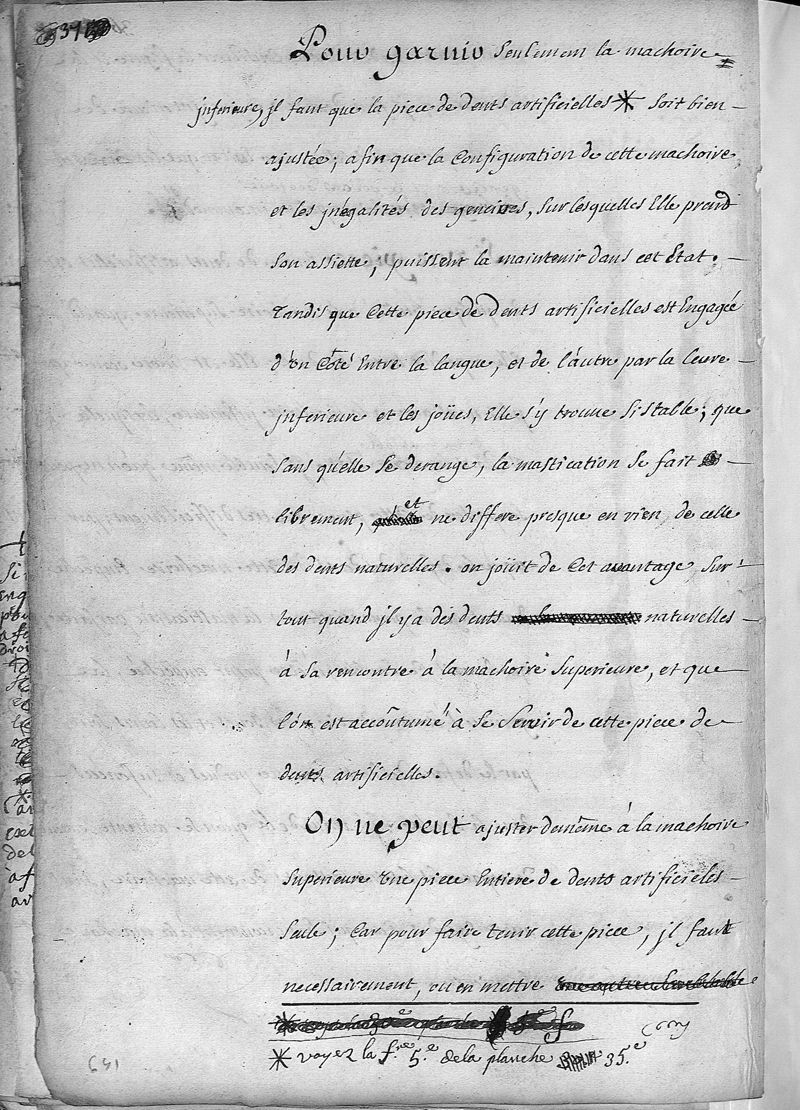 Pour garnir seulement la machoire
inferieure, jl faut que la piece de dents artificielles * soit bien
ajustée; afin que la Configuration de cette machoire,
et les jnégalités des gencives, sur lesquelles Elle prend
son assiette, puissent la maintenir dans cet Etat.
Tandis que Cette piece de dents artificielles est Engagée
d'un Côté Entre la langue, et de l'autre par la levre
jnferieure et les joües, Elle s'y trouve si stable; que
sans qu'elle se derange, la mastication se fait
librement, et ne differe presque en rien, de celle
des dents naturelles. on joüit de Cet avantage, sur-
tout quand jl y a des dents naturelles
à sa rencontre à la machoire superieure, et que
l'on est accoûtumé à se servir de cette piece de
dents artificielles.
On ne peut ajuster demême à la machoire
superieure une piece Entiere de dents artificieles
seule; Car pour faire tenir cette piece, jl faut
necessairement, ou en mettre
* voyez la f.re 5.e de la planche 35.e
641